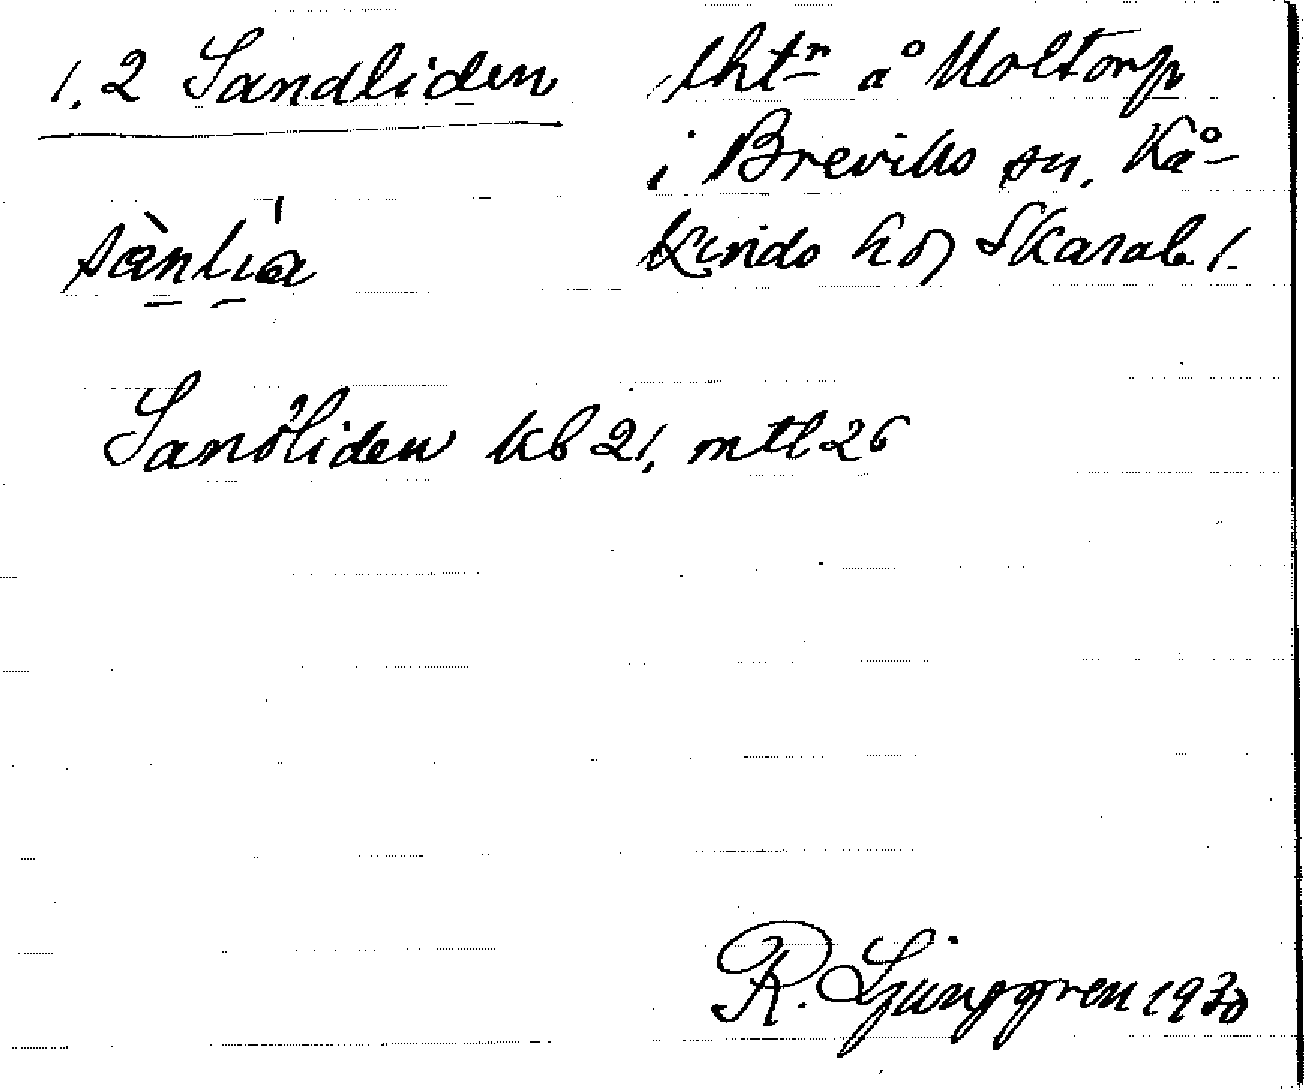 1.2 Sandliden lhtr å Moltorp
i Breviks sn. Kå-
kinds hd Skarab. l.
sànlía
Sandliden kb 21, mtl 26
R. Ljunggren 1930